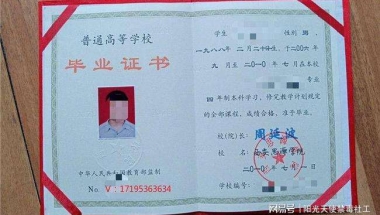 普通高等学校
毕业证书
中华人民共和国教育部监制
No
V:17195363634
学生 性别
一九八八年二月二十 日,于二00六年
九月至二0一0年七月在本校
专业
四年制本科学习,修完教学计划规定
的全部课程,成绩合格,准予毕业。
校(院)长:周延波
校名:西安思源学院
二0一0年七月一日
学校编号:
搜狐号@阳光天使禁毒社工